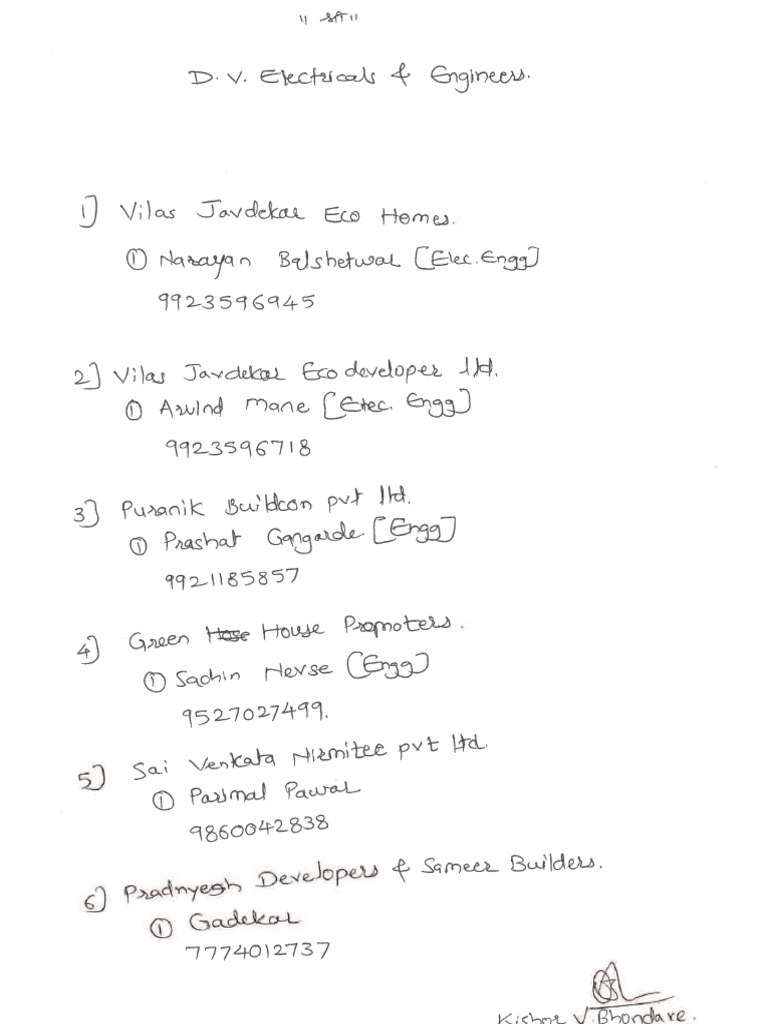 ॥ श्री ॥
D. V. Electricals & Engineers.
1] Vilas Javdekar Eco Homes.
① Narayan Balshetwar [Elec. Engg]
9923596945
2] Vilas Javdekar Ecodeveloper ltd.
① Arvind Mane [Elec. Engg]
9923596718
3] Puranik Buildcon pvt ltd.
① Prashat Gangarde [Engg]
9921185857
4] Green House Promoters.
① Sachin Nevse [Engg]
9527027499.
5] Sai Venkata Nirmitee pvt ltd.
① Parimal Pawar
9860042838
6] Pradnyesh Developers & Sameer Builders.
① Gadekar
7774012737
Kishor V. Bhondare.